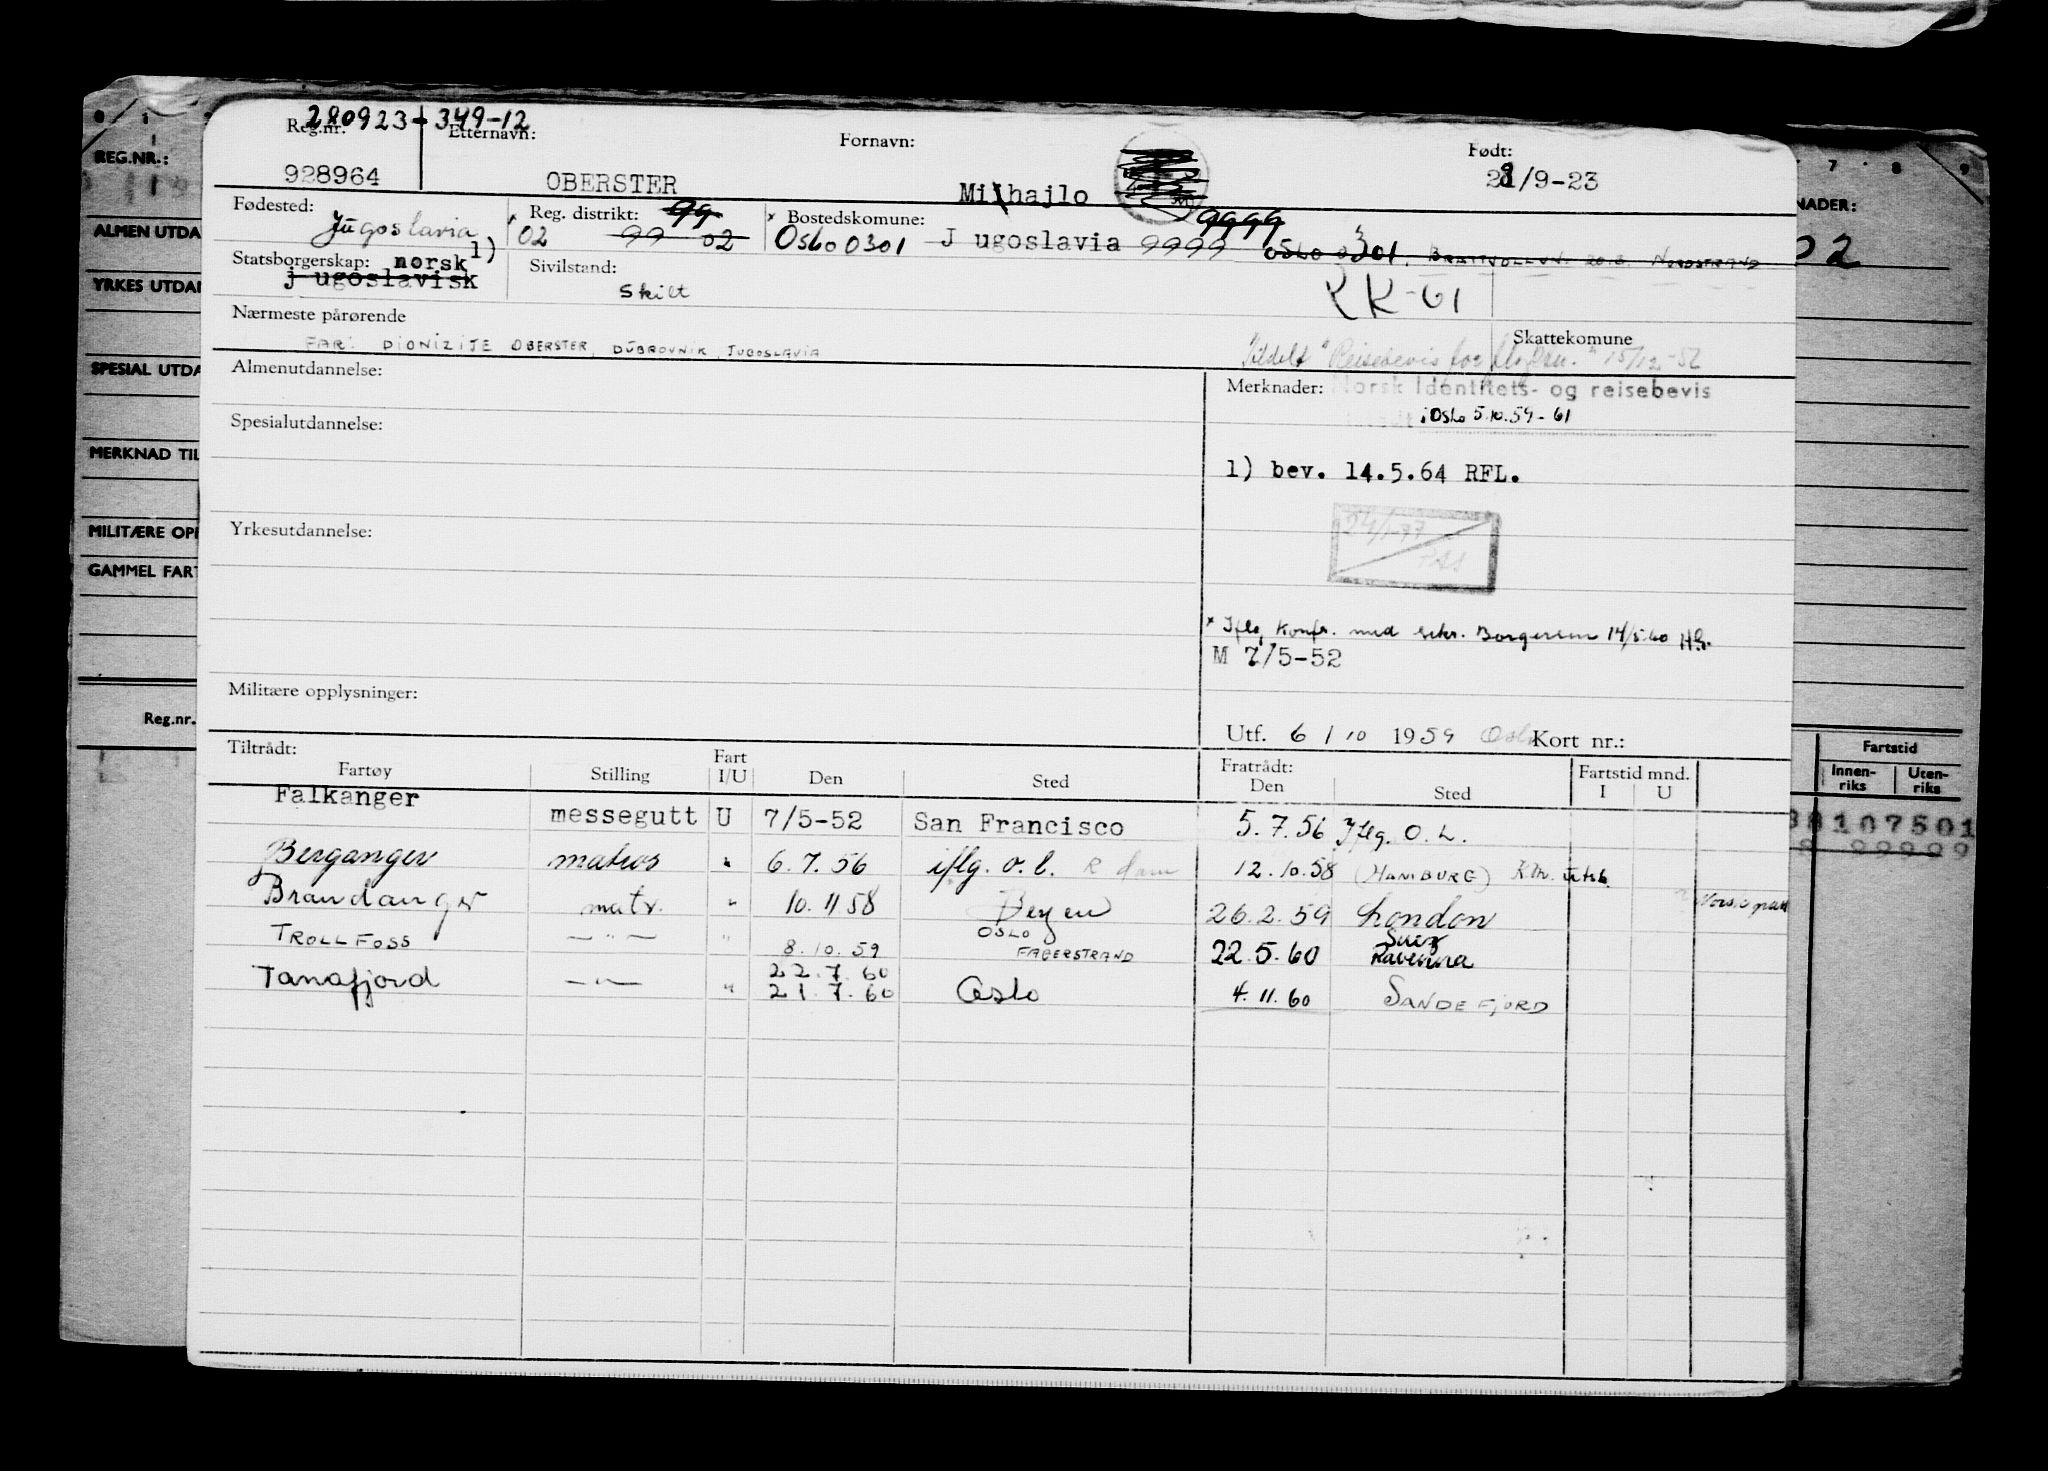 280923 349-12
Reg.nr. Etternavn: Fornavn: Født:
928964 OBERSTER Mihajlo 28/9-23
Fødested: Jugoslavia Reg. distrikt: 99 Bostedskomune: 9999
02 99 02 Oslo 0301 Jugoslavia 9999 OSLO 0301, NORDSTRAND
Statsborgerskap: norsk 1) Sivilstand:
jugoslavisk Skilt RK-61
Nærmeste pårørende Skattekomune
FAR: DIONIZIJE OBERSTER, DUBROVNIK, JUGOSLAVIA
Tildelt "Reisebevis for 15/12-52
Almenutdannelse: Merknader: Norsk Identitets- og reisebevis
i Oslo 5.10.59-61
Spesialutdannelse:
1) bev. 14.5.64 RFL.
Yrkesutdannelse:
24/1-77
PAS
* Iflg. Konfr. med sekr. Borgersen 14/5.60 HB.
M 7/5-52
Militære opplysninger:
Utf. 6/10 1959 Oslo Kort nr.:
Tiltrådt: Fratrådt:
Fartøy Stilling Fart I/U Den Sted Den Sted Fartstid mnd. I U
Falkanger messegutt U 7/5-52 San Francisco 5.7.56 Iflg. O.L.
Berganger matros " 6.7.56 iflg. o.l. R dam 12.10.58 (HAMBURG) utsk.
Brandanger matr. " 10.11 58 Bergen 26.2.59 London
TROLLFOSS — " — " 8.10.59 OSLO FAGERSTRAND 22.5.60 Suez Ravenna
22.7.60
Tanafjord — " — " 21.7.60 Oslo 4.11.60 SANDEFJORD
REG.NR.:
ALMEN UTDA
YRKES UTDA
SPESIAL UTDA
MERKNAD TIL
MILITÆRE OPP
GAMMEL FART
Reg.nr.
7 8 9
NADER:
02
Fartstid
Innen-riks Uten-riks
38107501
99999